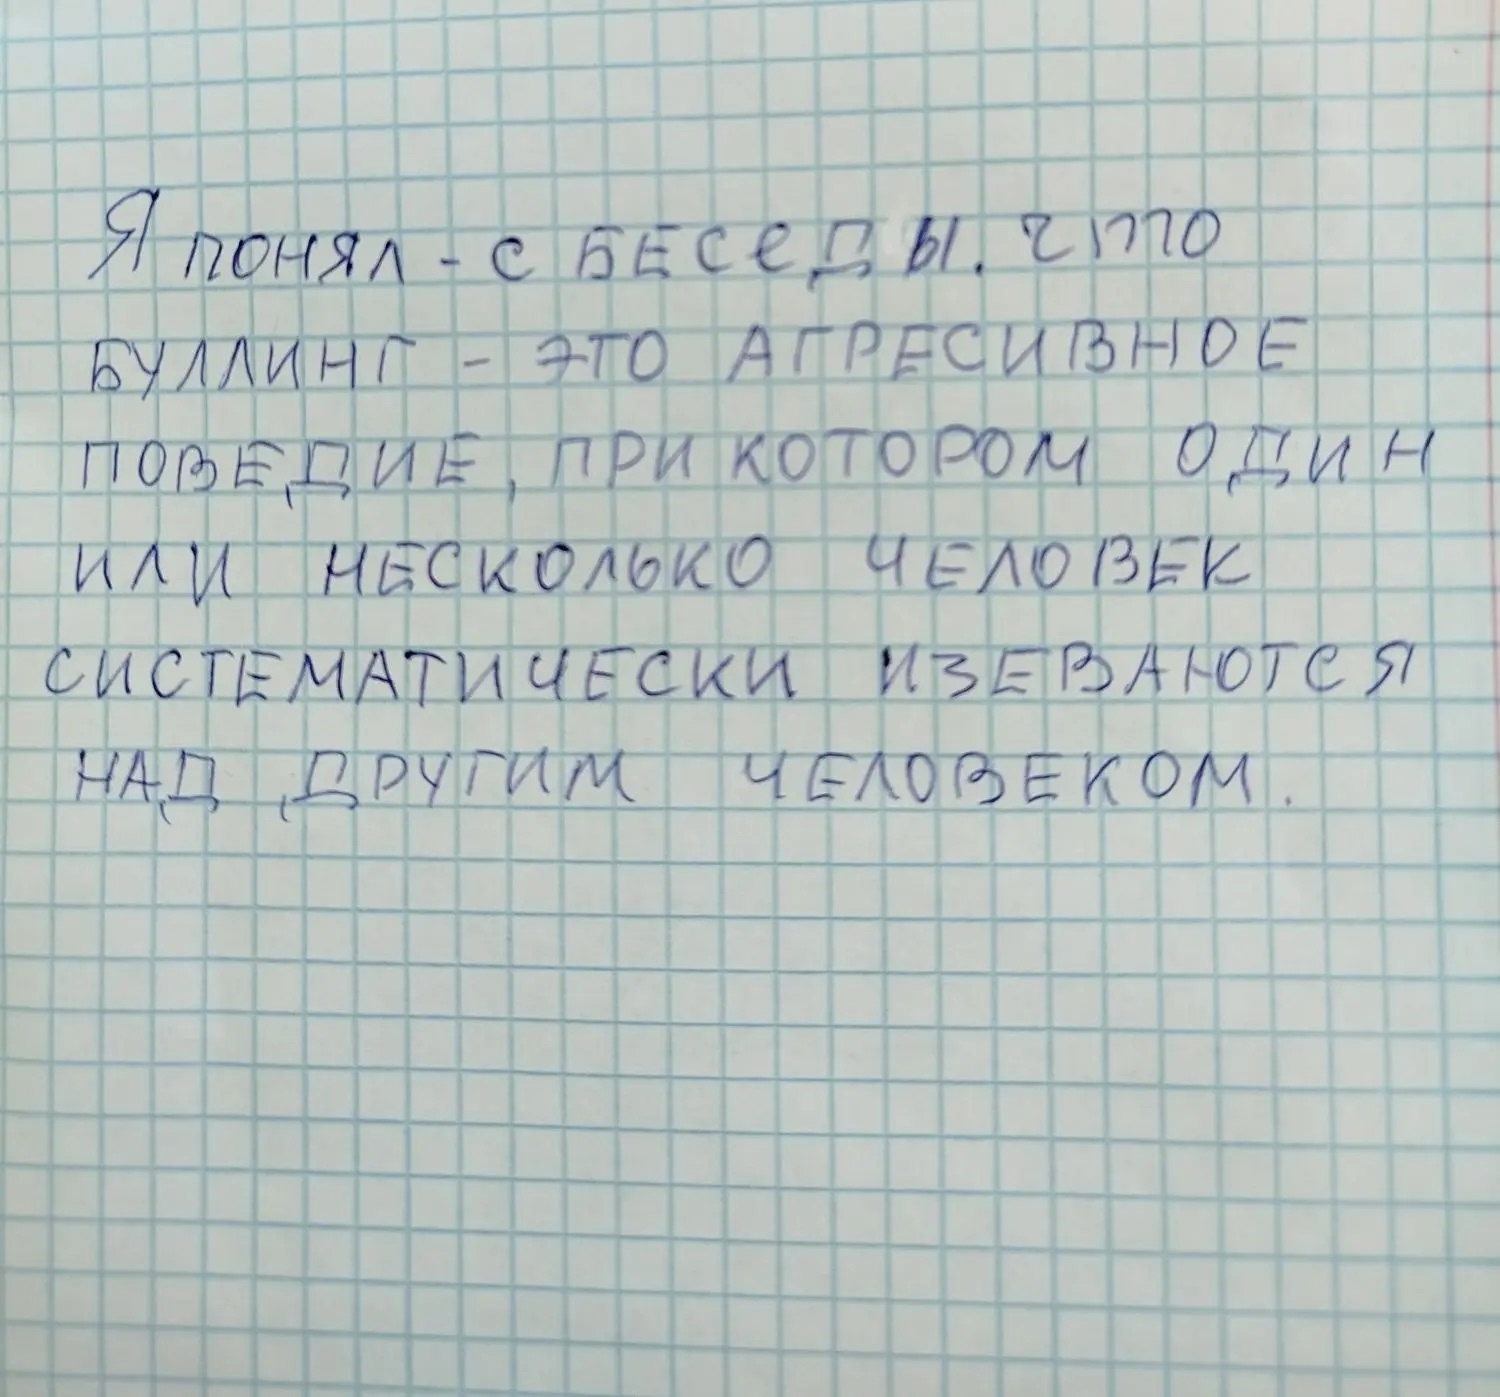 Я ПОНЯЛ - С БЕСЕДЫ. ЧТО
БУЛЛИНГ - ЭТО АГРЕСИВНОЕ
ПОВЕДИЕ, ПРИ КОТОРОМ ОДИН
ИЛИ НЕСКОЛЬКО ЧЕЛОВЕК
СИСТЕМАТИЧЕСКИ ИЗЕВАЮТСЯ
НАД ДРУГИМ ЧЕЛОВЕКОМ.